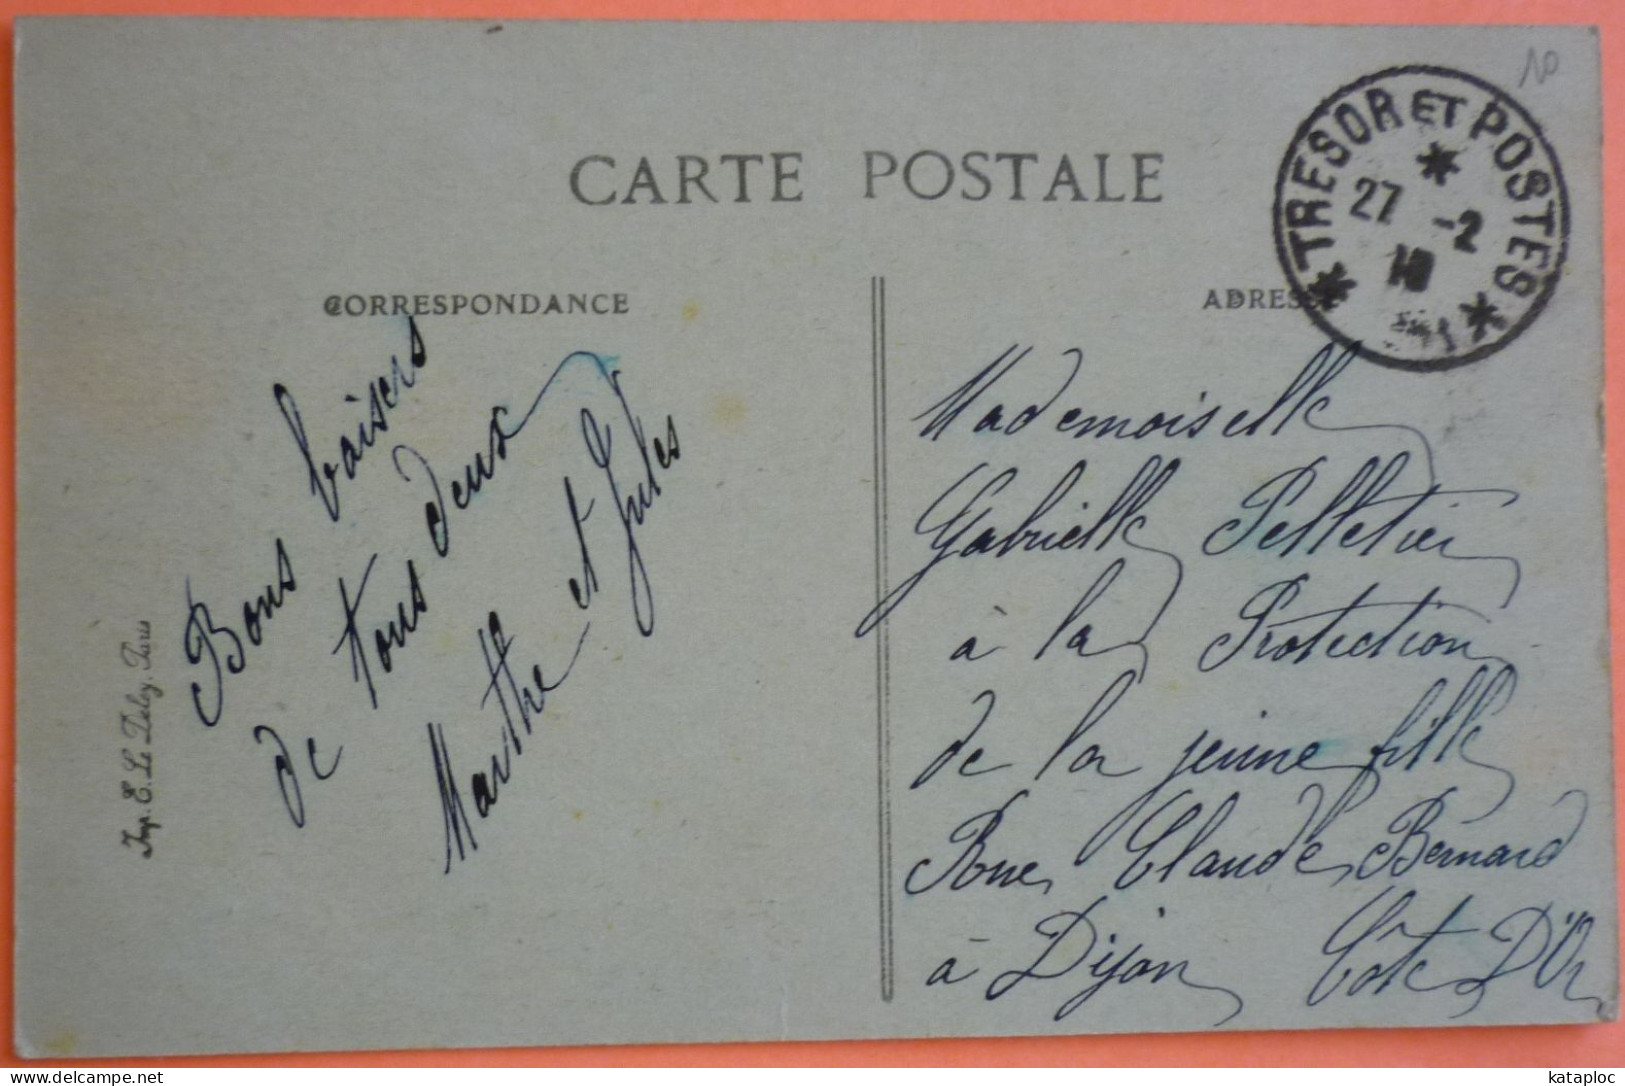 10
CARTE POSTALE
TRESOR ET POSTES
27 -2
CORRESPONDANCE
ADRESSE
Bons baisers
de tous deux
Marthe et Jules
Mademoiselle
Gabrielle Pelletier
à la Protection
de la jeune fille
Rue Claude Bernard
à Dijon Côte D'Or
Imp. E. Le Deley, Paris
delcampe.net
kataploc